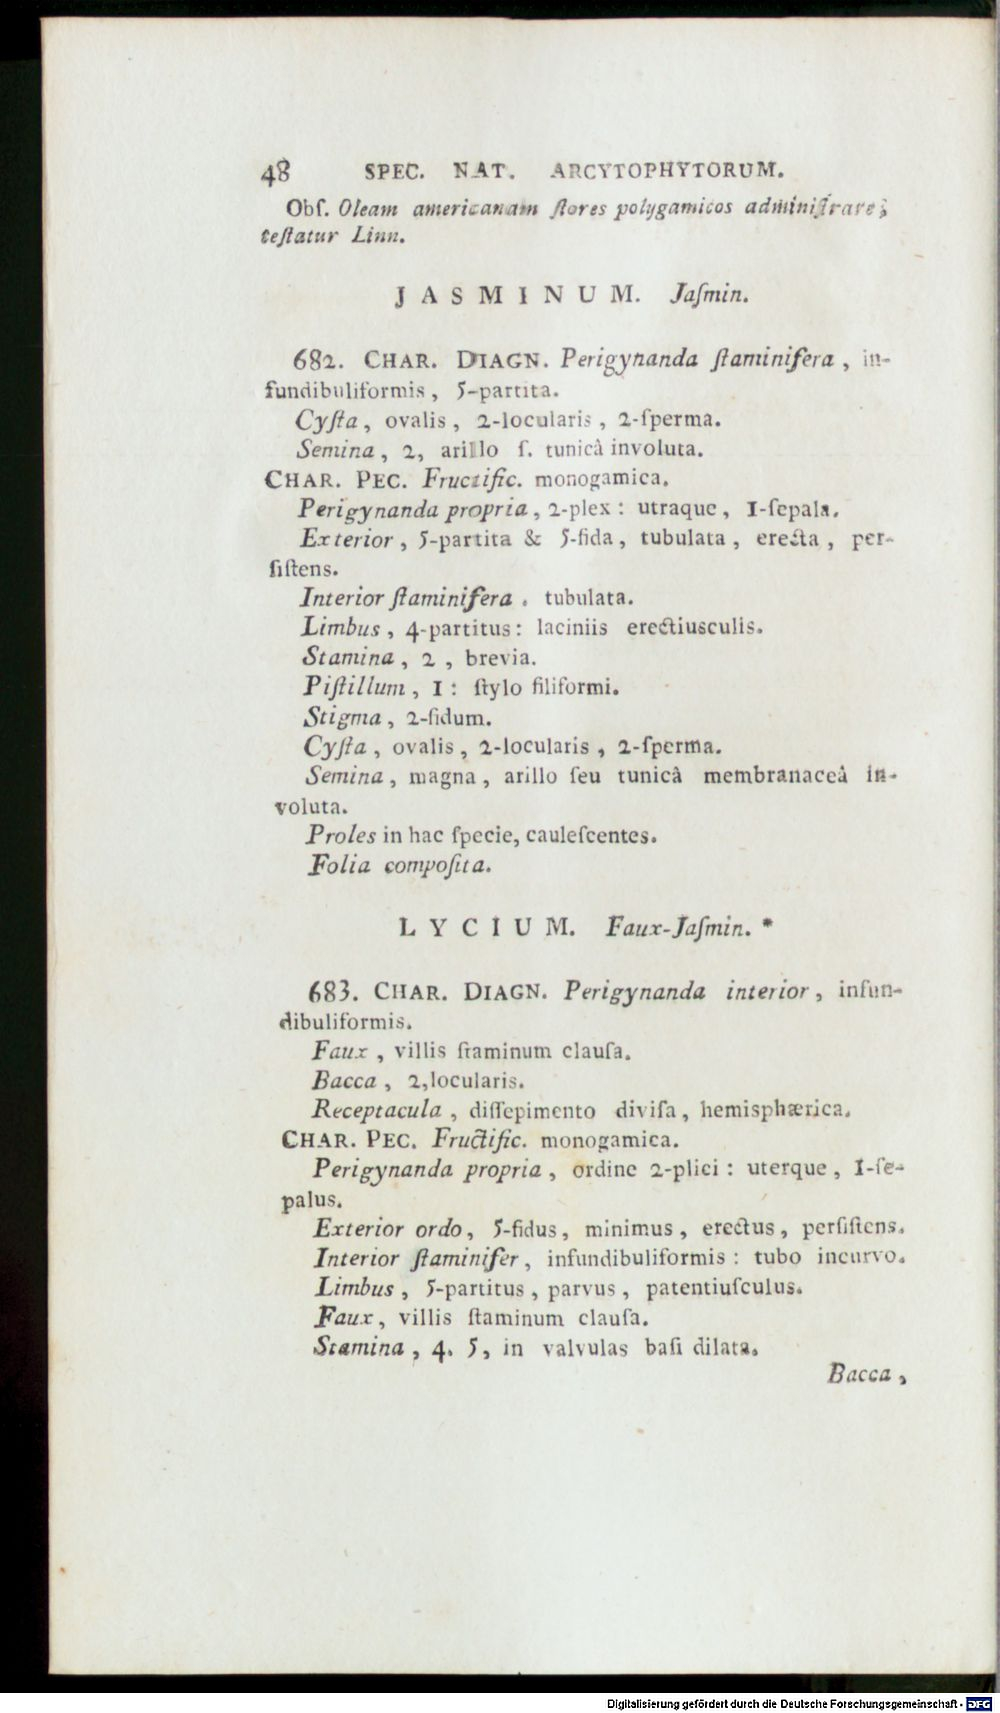 48 SPEC. NAT. ARCYTOPHYTORUM.
Obſ. Oleam americanam flores polygamicos adminiſtrare;
teſtatur Linn.
JASMINUM. Jaſmin.
682. CHAR. DIAGN. Perigynanda ſtaminifera, in-
fundibuliformis, 5-partita.
Cyſta, ovalis, 2-locularis, 2-ſperma.
Semina, 2, arillo ſ. tunicâ involuta.
CHAR. PEC. Fructific. monogamica.
Perigynanda propria, 2-plex: utraque, 1-ſepala.
Exterior, 5-partita & 5-fida, tubulata, erecta, per-
ſiſtens.
Interior ſtaminifera. tubulata.
Limbus, 4-partitus: laciniis erectiusculis.
Stamina, 2, brevia.
Piſtillum, 1: ſtylo filiformi.
Stigma, 2-fidum.
Cyſta, ovalis, 2-locularis, 2-ſperma.
Semina, magna, arillo ſeu tunicâ membranaceâ in-
voluta.
Proles in hac ſpecie, cauleſcentes.
Folia compoſita.
LYCIUM. Faux-Jaſmin. *
683. CHAR. DIAGN. Perigynanda interior, infun-
dibuliformis.
Faux, villis ſtaminum clauſa.
Bacca, 2,locularis.
Receptacula, diſſepimento diviſa, hemisphærica.
CHAR. PEC. Fructific. monogamica.
Perigynanda propria, ordine 2-plici: uterque, 1-ſe-
palus.
Exterior ordo, 5-fidus, minimus, erectus, perſiſtens.
Interior ſtaminifer, infundibuliformis: tubo incurvo.
Limbus, 5-partitus, parvus, patentiuſculus.
Faux, villis ſtaminum clauſa.
Stamina, 4. 5, in valvulas baſi dilata.
Bacca,
Digitalisierung gefördert durch die Deutsche Forschungsgemeinschaft - DFG